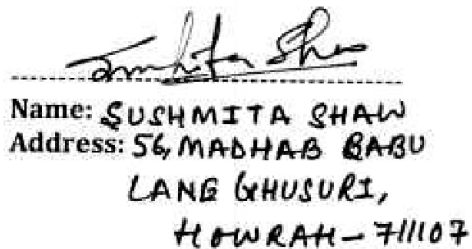 Name: SUSHMITA SHAW
Address: 56, MADHAB BABU
LANE GHUSURI,
HOWRAH - 711107